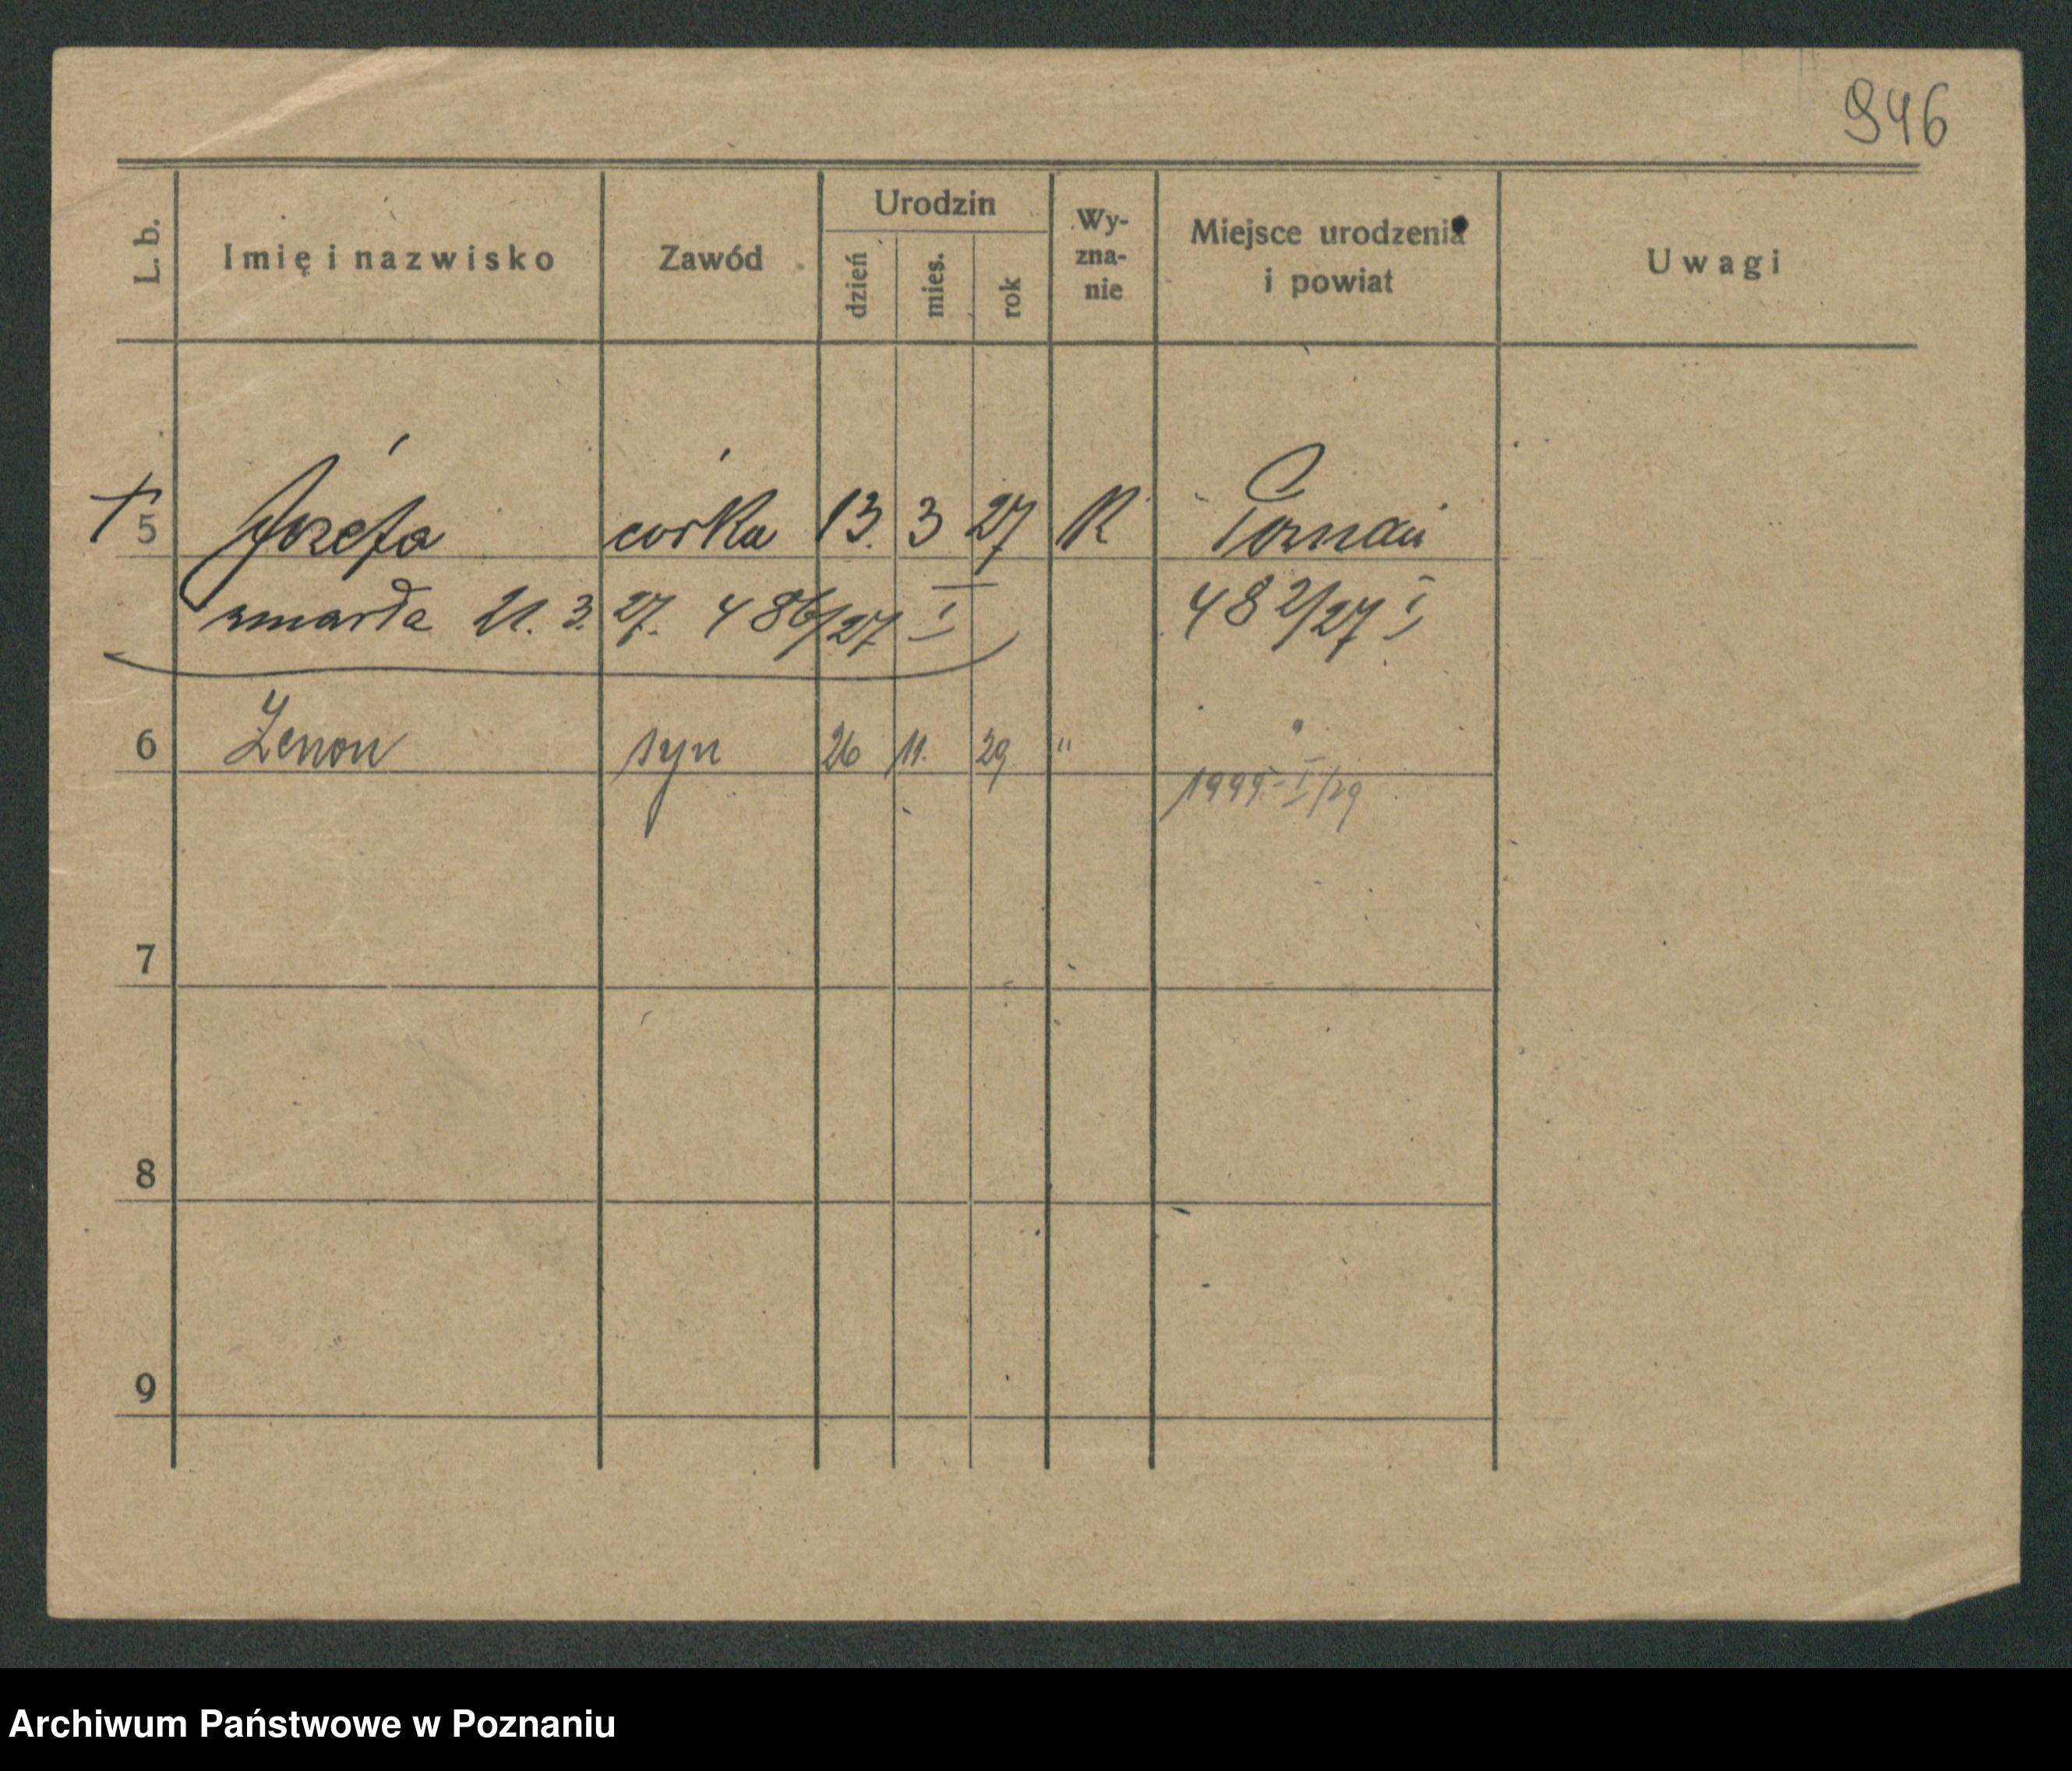 946
L. b.
Imię i nazwisko
Zawód
Urodzin
dzień
mies.
rok
Wy-
zna-
nie
Miejsce urodzenia
i powiat
Uwagi
† 5 Józefa córka 13. 3 27 R Poznań
zmarła 21. 3. 27. 486/27 I 482/27 I
6 Zenon syn 26 11. 29 " "
1999 - I/29
7
8
9
Archiwum Państwowe w Poznaniu